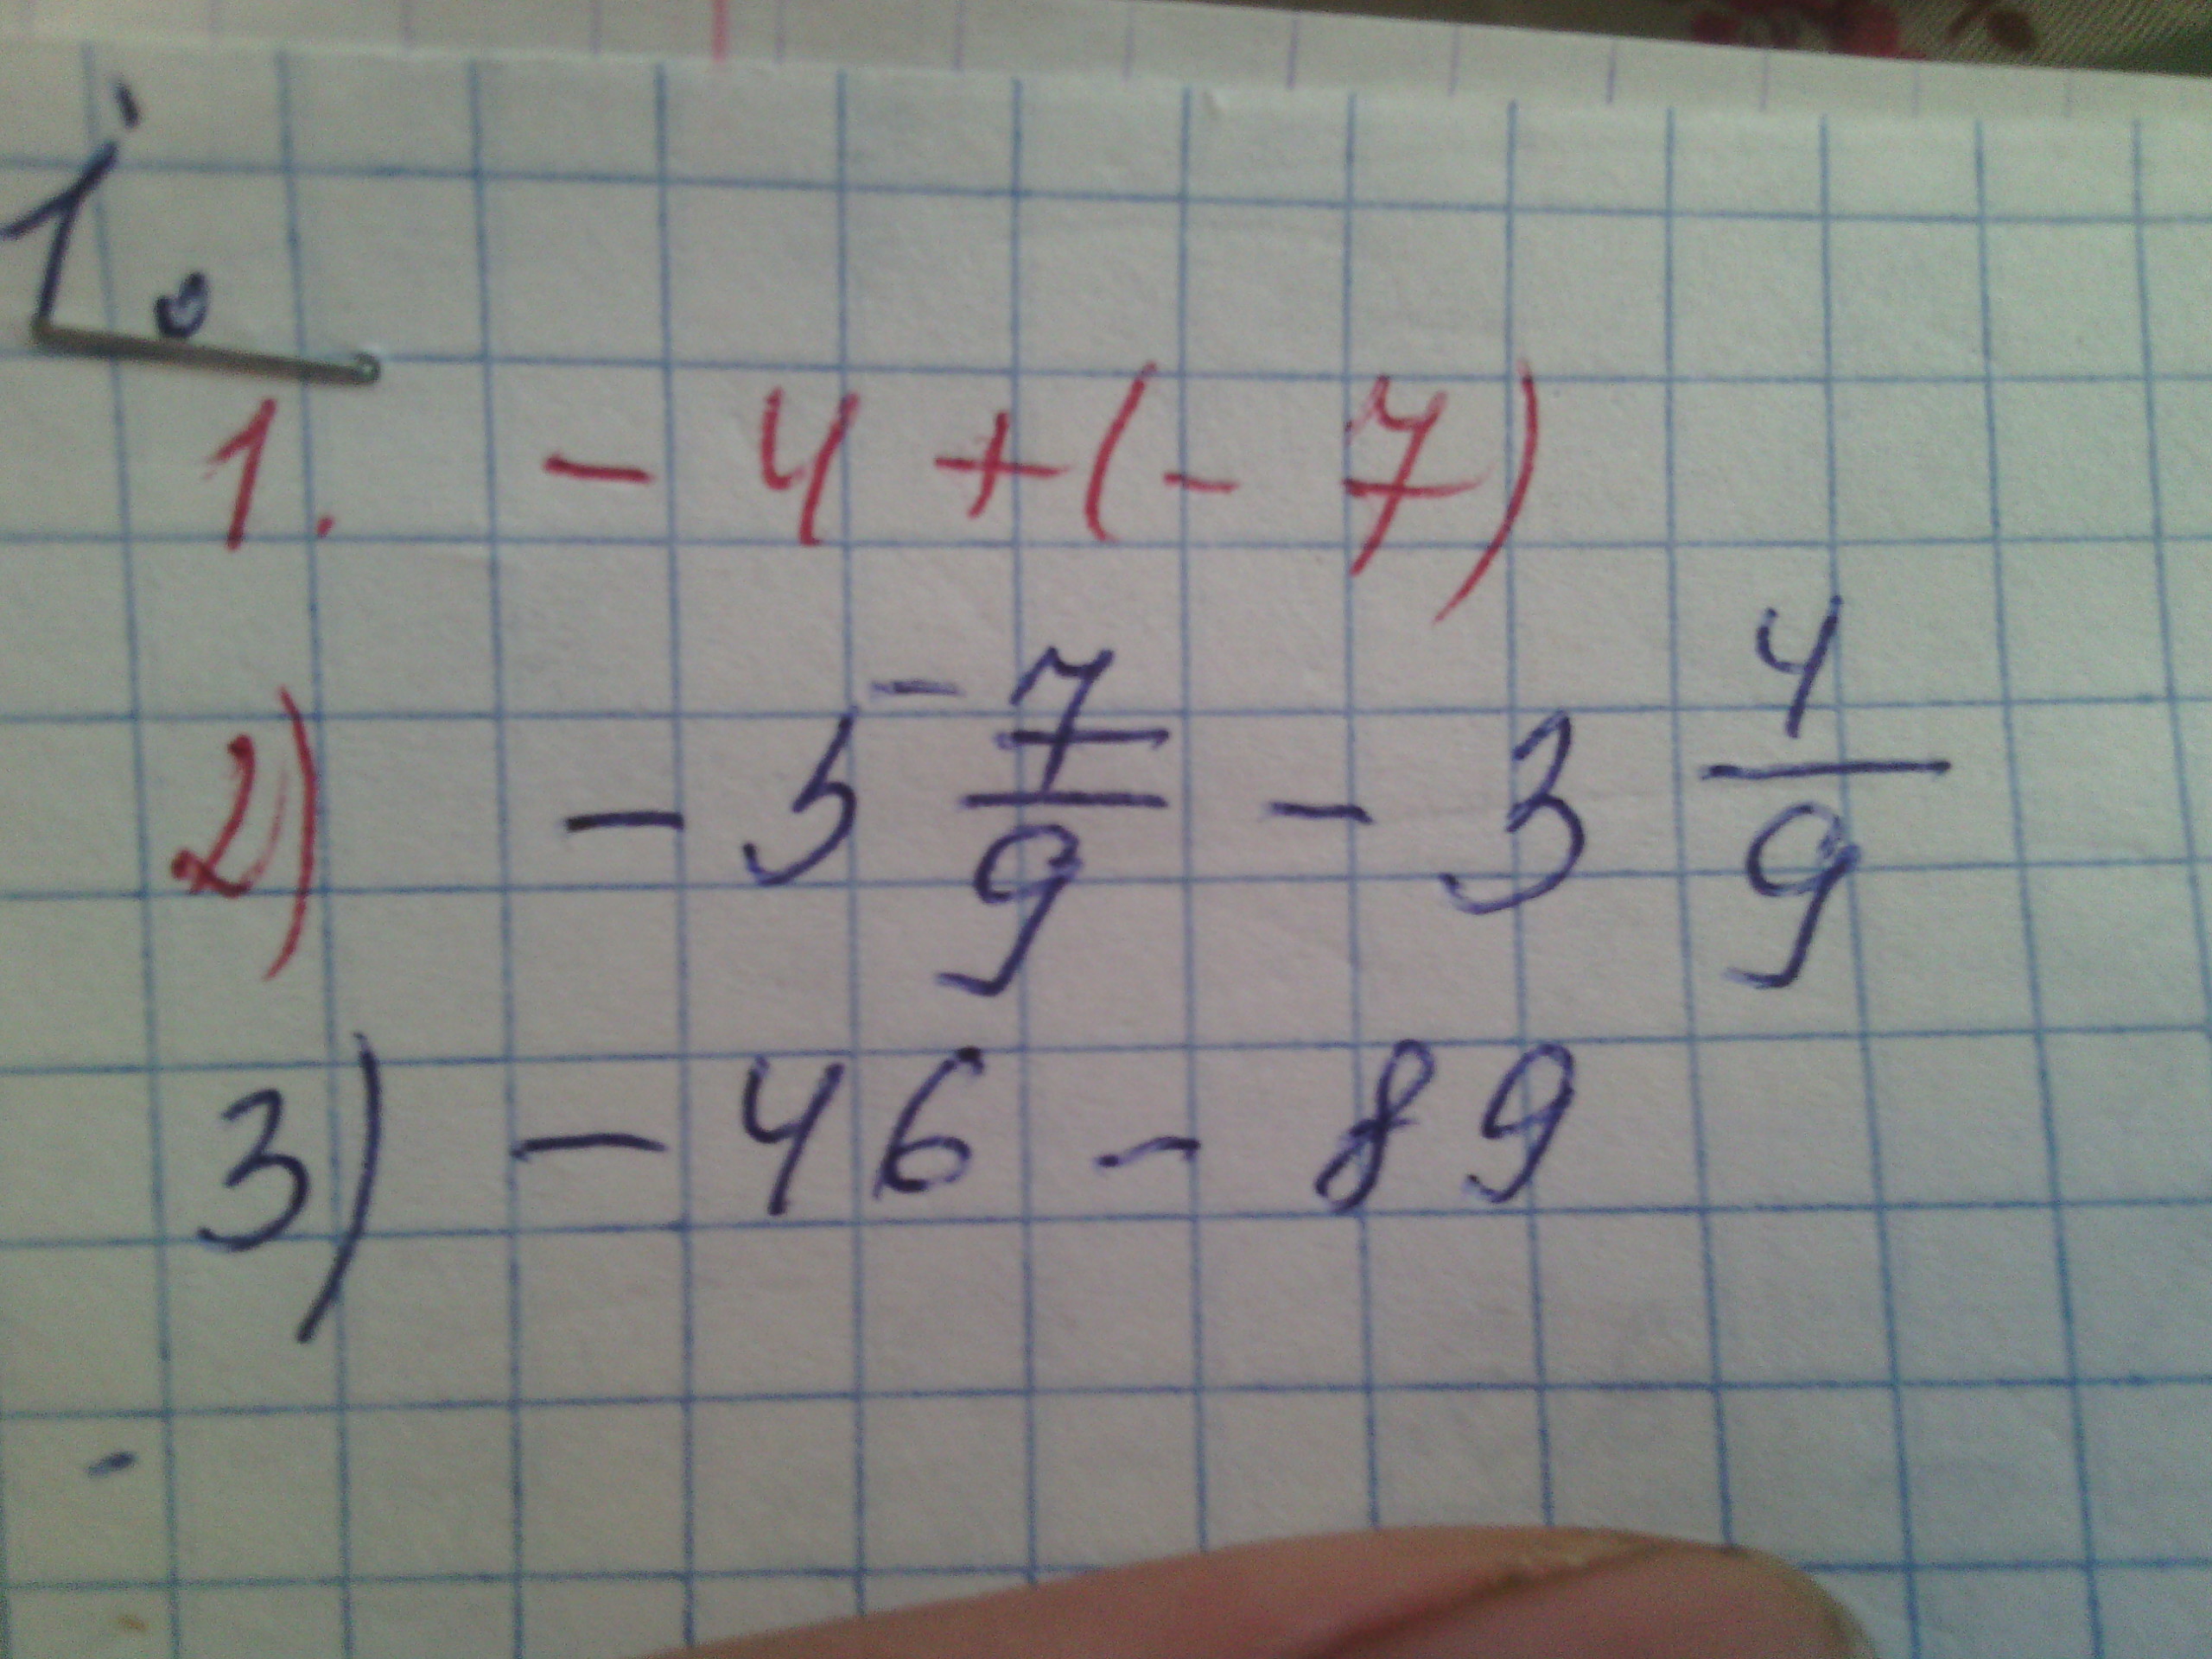 1.
1. - 4 + (- 7)
2) - 5 7/9 - 3 4/9
3) - 46 - 89